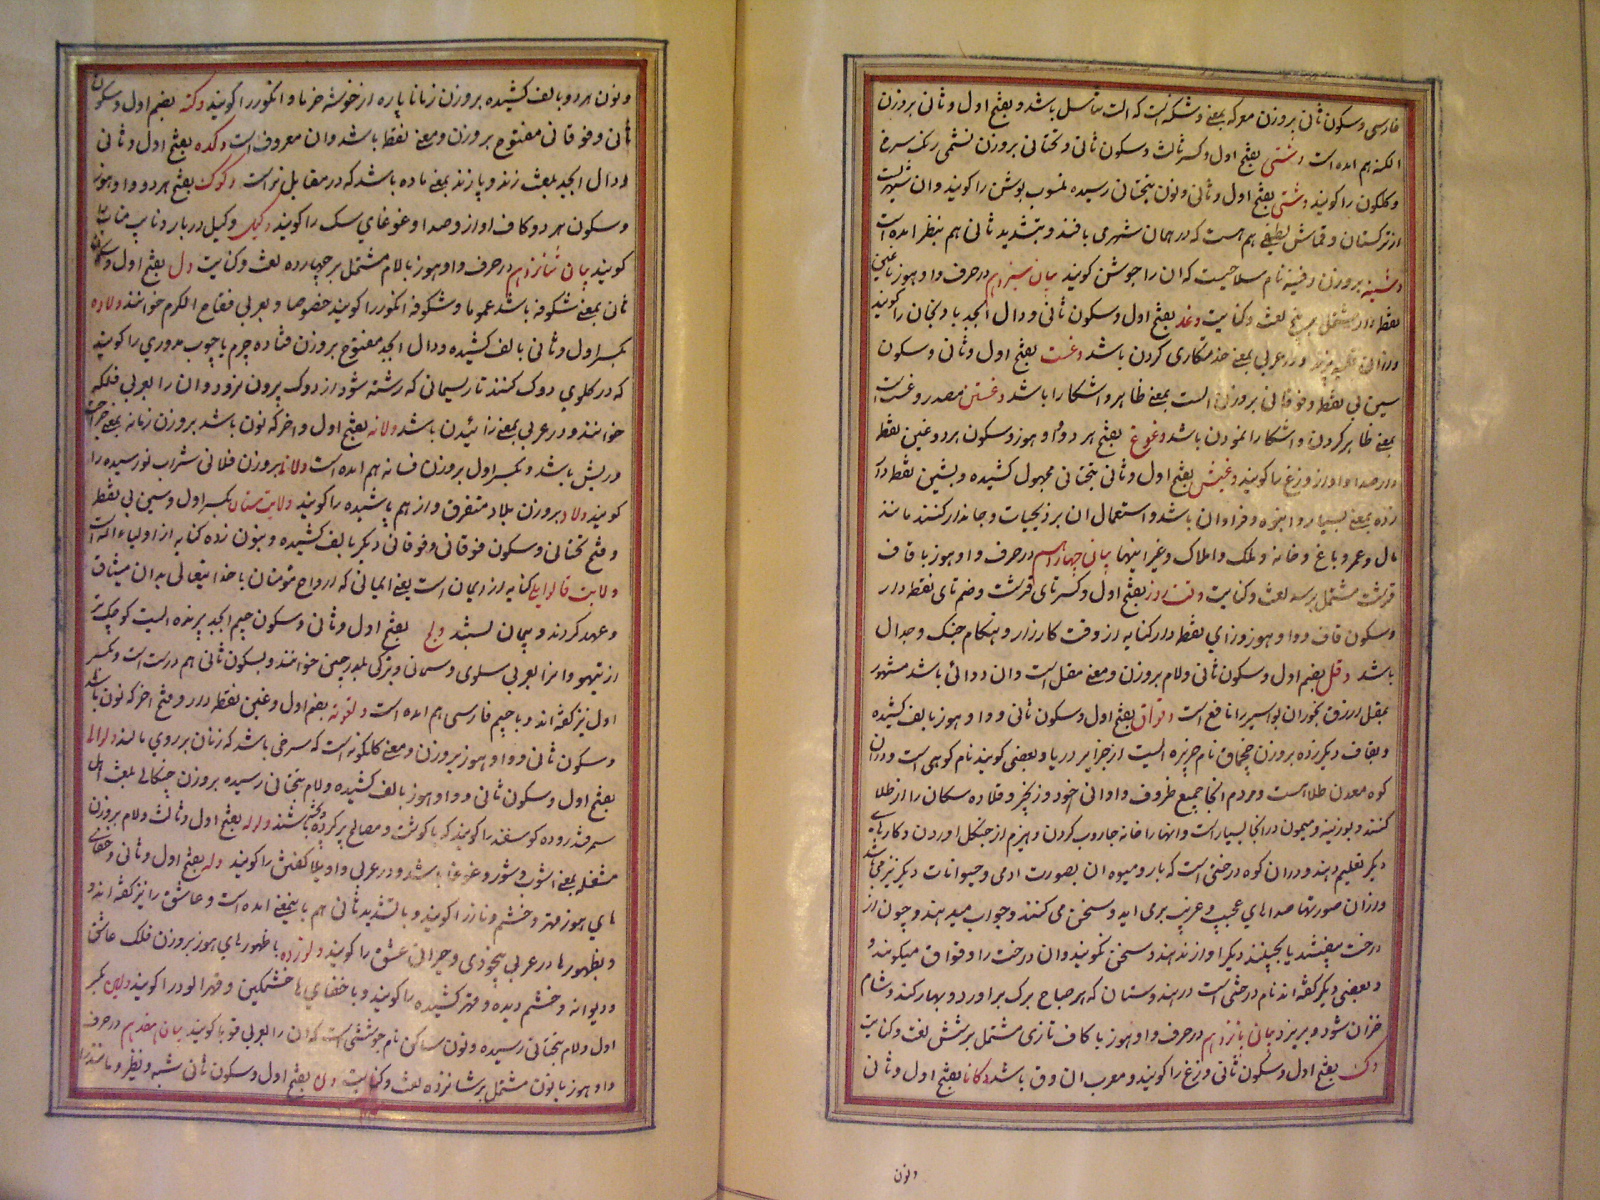 فارسی و سکون ثانی بروزن معرکه بمعنی وشکنه است که الت تناسل باشد و بفتح اول و ثانی بروزن
الکنه هم امده است وشتی بفتح اول و کسر ثالث و سکون ثانی و تحتانی بروزن کشتی رنک سرخ
و کلکون را کویند وشتی بفتح اول و ثانی و نون بتحتانی رسیده منسوب بوشن را کویند وان شهریست
از ترکستان و قماش لطیفی هم هست که در همان شهر می بافند و بتشدید ثانی هم بنظر امده است
وشینه بروزن دفینه نام سلاحیست که ان را جوشن کویند بیان سیزدهم در حرف واو هوز با غین
نقطه دار مشتمل بر پنج لغت و کنایت وغد بفتح اول و سکون ثانی و دال ابجد بادنجان را کویند
و در عربی بمعنی خدمتکاری کردن باشد وغست بفتح اول و ثانی و سکون
سین بی نقطه و فوقانی بروزن الست بمعنی ظاهر و اشکارا باشد وغستن مصدر وغست است
بمعنی ظاهر کردن و اشکارا نمودن باشد وغوغ بفتح هر دو واو هوز و سکون هر دو غین نقطه
دار صدا و اواز وزغ را کویند وغیش بفتح اول و ثانی بتحتانی مجهول کشیده و بشین نقطه دار
زده بمعنی بسیار و انبوه و فراوان باشد و استعمال ان بر ذیحیات و جاندار کنند مانند
مال و عمر و باغ و خانه و ملک و املاک و غیر اینها بیان چهاردهم در حرف واو هوز با قاف
قرشت مشتمل بر سه لغت و کنایت وقت روز بفتح اول و کسر تای قرشت و ضم تای نقطه دار
و سکون قاف و واو هوز و زای نقطه دار کنایه از وقت کارزار و هنکام جنک و جدال
باشد وقل بضم اول و سکون ثانی و لام بروزن و معنی مقل است وان دوائی باشد مشهور
بمقل ازرق بخور ان بواسیر را نافع است وقواق بفتح اول و سکون ثانی و واو هوز بالف کشیده
و بقاف دیکر زده بروزن چخماق نام جزیره ایست از جزایر دریا و بعضی کویند نام کوهی است و دران
کوه معدن طلاست و مردم انجا جمیع ظروف و اوانی خود و زنجیر و قلاده سکان را از طلا
کنند و بوزینه و میمون در انجا بسیار است و انها را خانه جاروب کردن و هیزم از جنکل اوردن و کارهای
دیکر تعلیم دهند و دران کوه درختی است که بار و میوه ان بصورت ادمی و حیوانات دیکر نیز می باشد
و ازان صورتها صداهای عجیب و غریب برمی اید و سخن می کنند و جواب میدهند و چون از
درخت بیفتند یا بچینند دیکر اواز ندهند و سخن نکویند وان درخت را وقواق میکویند و
و بعضی دیکر کفته اند نام درختی است در هندوستان که هر صباح برک براورد و بهار کند و شام
خزان شود و بریزد بیان پانزدهم در حرف واو هوز با کاف تازی مشتمل بر شش لغت و کنایت
وک بفتح اول و سکون ثانی وزغ را کویند و معرب ان وق باشد وکانا بفتح اول و ثانی
ونون
ونون هر دو بالف کشیده بروزن زمانا پاره از خوشه خرما و انکور را کویند وکته بضم اول و سکون
ثانی و فوقانی مفتوح بروزن و معنی نقطه باشد وان معروف است وکده بفتح اول و ثانی
و دال ابجد بلغت زند و پازند بمعنی ماده باشد که در مقابل نر است وکوک بفتح هر دو واو هوز
و سکون هر دو کاف اواز و صدا و غوغای سک را کویند وکیل وکیل دربار و نایب مناب را
کویند بیان شانزدهم در حرف واو هوز با لام مشتمل بر چهارده لغت و کنایت ول بفتح اول و سکون
ثانی بمعنی شکوفه باشد عموما و شکوفه انکور را کویند خصوصا و بعربی فقاح الکرم خوانند ولاده
بکسر اول و ثانی بالف کشیده و دال ابجد مفتوح بروزن فتاده چرم یا چوب مدوری را کویند
که در کلوی دوک کنند تا ریسمانی که رشته شود از دوک بیرون نرود وان را بعربی فلکه
خوانند و در عربی بمعنی زائیدن باشد ولانه بفتح اول و اخر که نون باشد بروزن زمانه بمعنی جراحت
و ریش باشد و بکسر اول بروزن فسانه هم امده است ولانی بروزن فلانی شراب نورسیده را
کویند ولاد بروزن بلاد متفرق و از هم پاشیده را کویند ولایت ستان بکسر اول و سین بی نقطه
و فتح تحتانی و سکون فوقانی و فوقانی دیکر بالف کشیده و بنون زده کنایه از اولیاء الله است
ولایت قالوا بلی کنایه از ایمان است یعنی ایمانی که ارواح مؤمنان با خدایتعالی بدان میثاق
و عهد کردند و پیمان بستند ولج بفتح اول و ثانی و سکون جیم ابجد پرنده ایست کوچک تر
از تیهو وانرا بعربی سلوی و سمانی و بترکی بلدرچین خوانند و بسکون ثانی هم درست است و بکسر
اول نیز کفته اند و با جیم فارسی هم امده است ولغونه بضم اول و غین نقطه دار و فتح اخر که نون باشد
و سکون ثانی و واو هوز بروزن و معنی کلکونه است که سرخی باشد که زنان بر روی مالند ولوالی
بفتح اول و سکون ثانی و واو هوز بالف کشیده و لام بتحتانی رسیده بروزن چنکالی بلغت اهل
سمرقند روده کوسفند را کویند که با کوشت و مصالح پر کرده و پخته باشند ولوله بفتح اول و ثالث و لام بروزن
مشغله بمعنی اشوب و شور و غوغا باشد و در عربی واویلا کفتن را کویند وله بفتح اول و ثانی و خفای
های هوز قهر و خشم و ناز را کویند و با تشدید ثانی هم باینمعنی امده است و عاشق را نیز کفته اند و
و بظهور ها در عربی بیخودی و حیرانی عشق را کویند ولوزده با ظهور های هوز بروزن فلک عاشق
و دیوانه و خشم دیده و قهر کشیده را کویند و با خفای ها خشمکین و قهرالود را کویند ولین بکسر
اول و لام بتحتانی رسیده و نون ساکن نام جوششی است که ان را بعربی قوبا کویند بیان هفدهم در حرف
واو هوز با نون مشتمل بر شانزده لغت و کنایت ون بفتح اول و سکون ثانی شبه و نظیر و مانند را